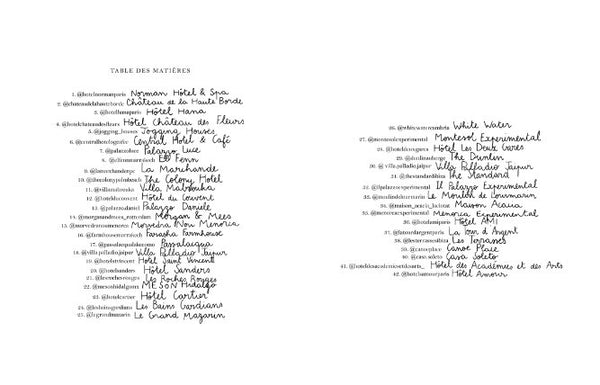 TABLE DES MATIÈRES
1. @hotelnormanparis Norman Hôtel & Spa
2. @chateaudelahauteborde Château de la Haute Borde
3. @hotelhanaparis Hôtel Hana
4. @hotelchateaudesfleurs Hôtel Château des Fleurs
5. @jogging_houses Jogging Houses
6. Central Hôtel & Café
7. @palazzoluce Palazzo Luce
8. @elfennmarrakech El Fenn
9. @lamarchanderge La Marchande
10. @thecolonypalmbeach The Colony Hotel
11. @villamabrouka Villa Mabrouka
12. @hotelducouvent Hôtel du Couvent
13. @palazzodaniele Palazzo Daniele
14. @morganandmees_rotterdam Morgan & Mees
15. Morvedra Nou Menorca
16. Farasha Farmhouse
17. @passalacqualakecomo Passalacqua
18. @villa.palladio.jaipur Villa Palladio Jaipur
19. @hotelstvincent Hôtel Saint Vincent
20. @hotelsanders Hôtel Sanders
21. @lesrochesrouges Les Roches Rouges
22. @mesonhidalgosm MESÓN Hidalgo
23. @hotelcartier Hôtel Cartier
24. @lesbainsgardians Les Bains Gardians
25. @legrandmazarin Le Grand Mazarin
26. White Water
27. @montesolexperimental Montesol Experimental
28. @hotellesdeuxgares Hôtel Les Deux Gares
29. The Dunlin
30. @villa.palladio.jaipur Villa Palladio Jaipur
31. @thestandardibiza The Standard
32. @ilpalazzoexperimental Il Palazzo Experimental
33. Le Moulin de Lourmarin
34. Maison Acacia
35. @menorcaexperimental Menorca Experimental
36. @hotelamiparis Hôtel AMI
37. @latourdargentparis La Tour d'Argent
38. @lesterrassesibiza Les Terrasses
39. @canoeplace Canoe Place
40. @casa.soleto Casa Soleto
41. Hôtel des Académies et des Arts
42. @hotelamourparis Hôtel Amour